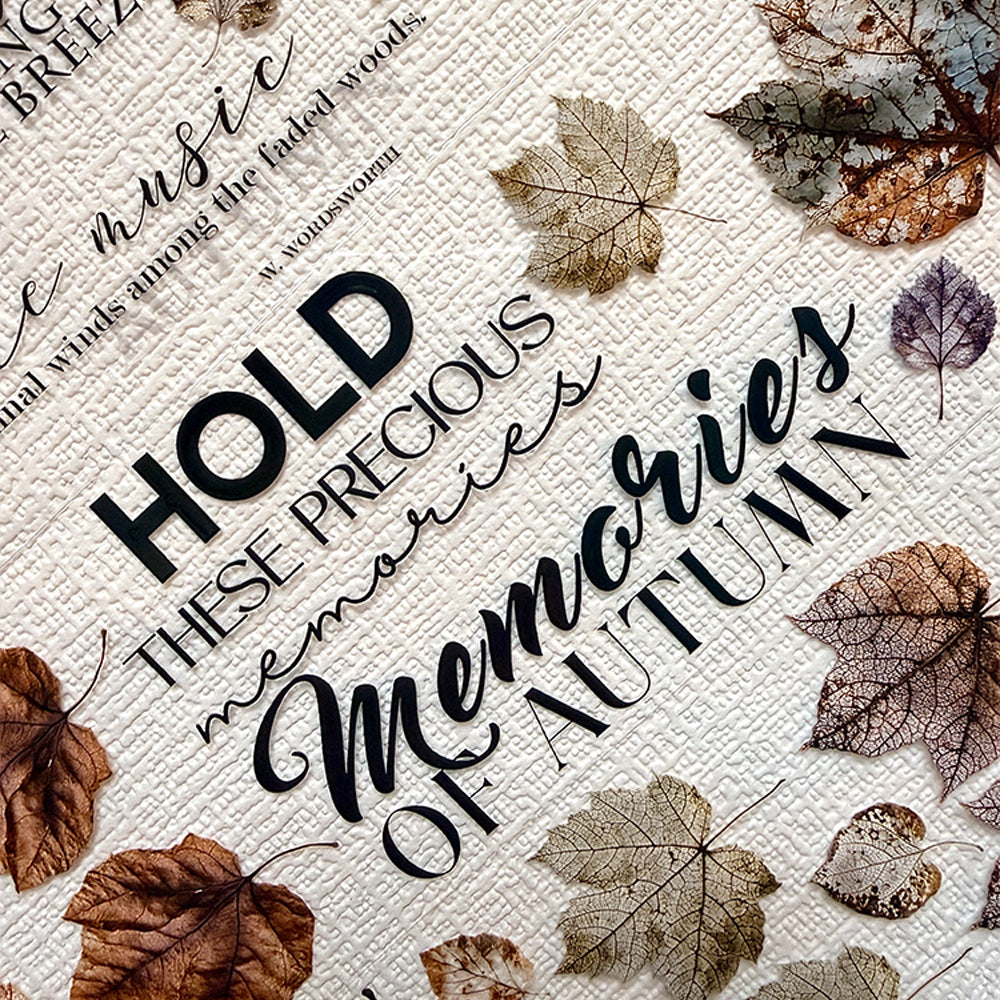 BREEZ
music
winds among the faded woods.
W. WORDSWORTH
HOLD
THESE PRECIOUS
memories
Memories
OF AUTUMN